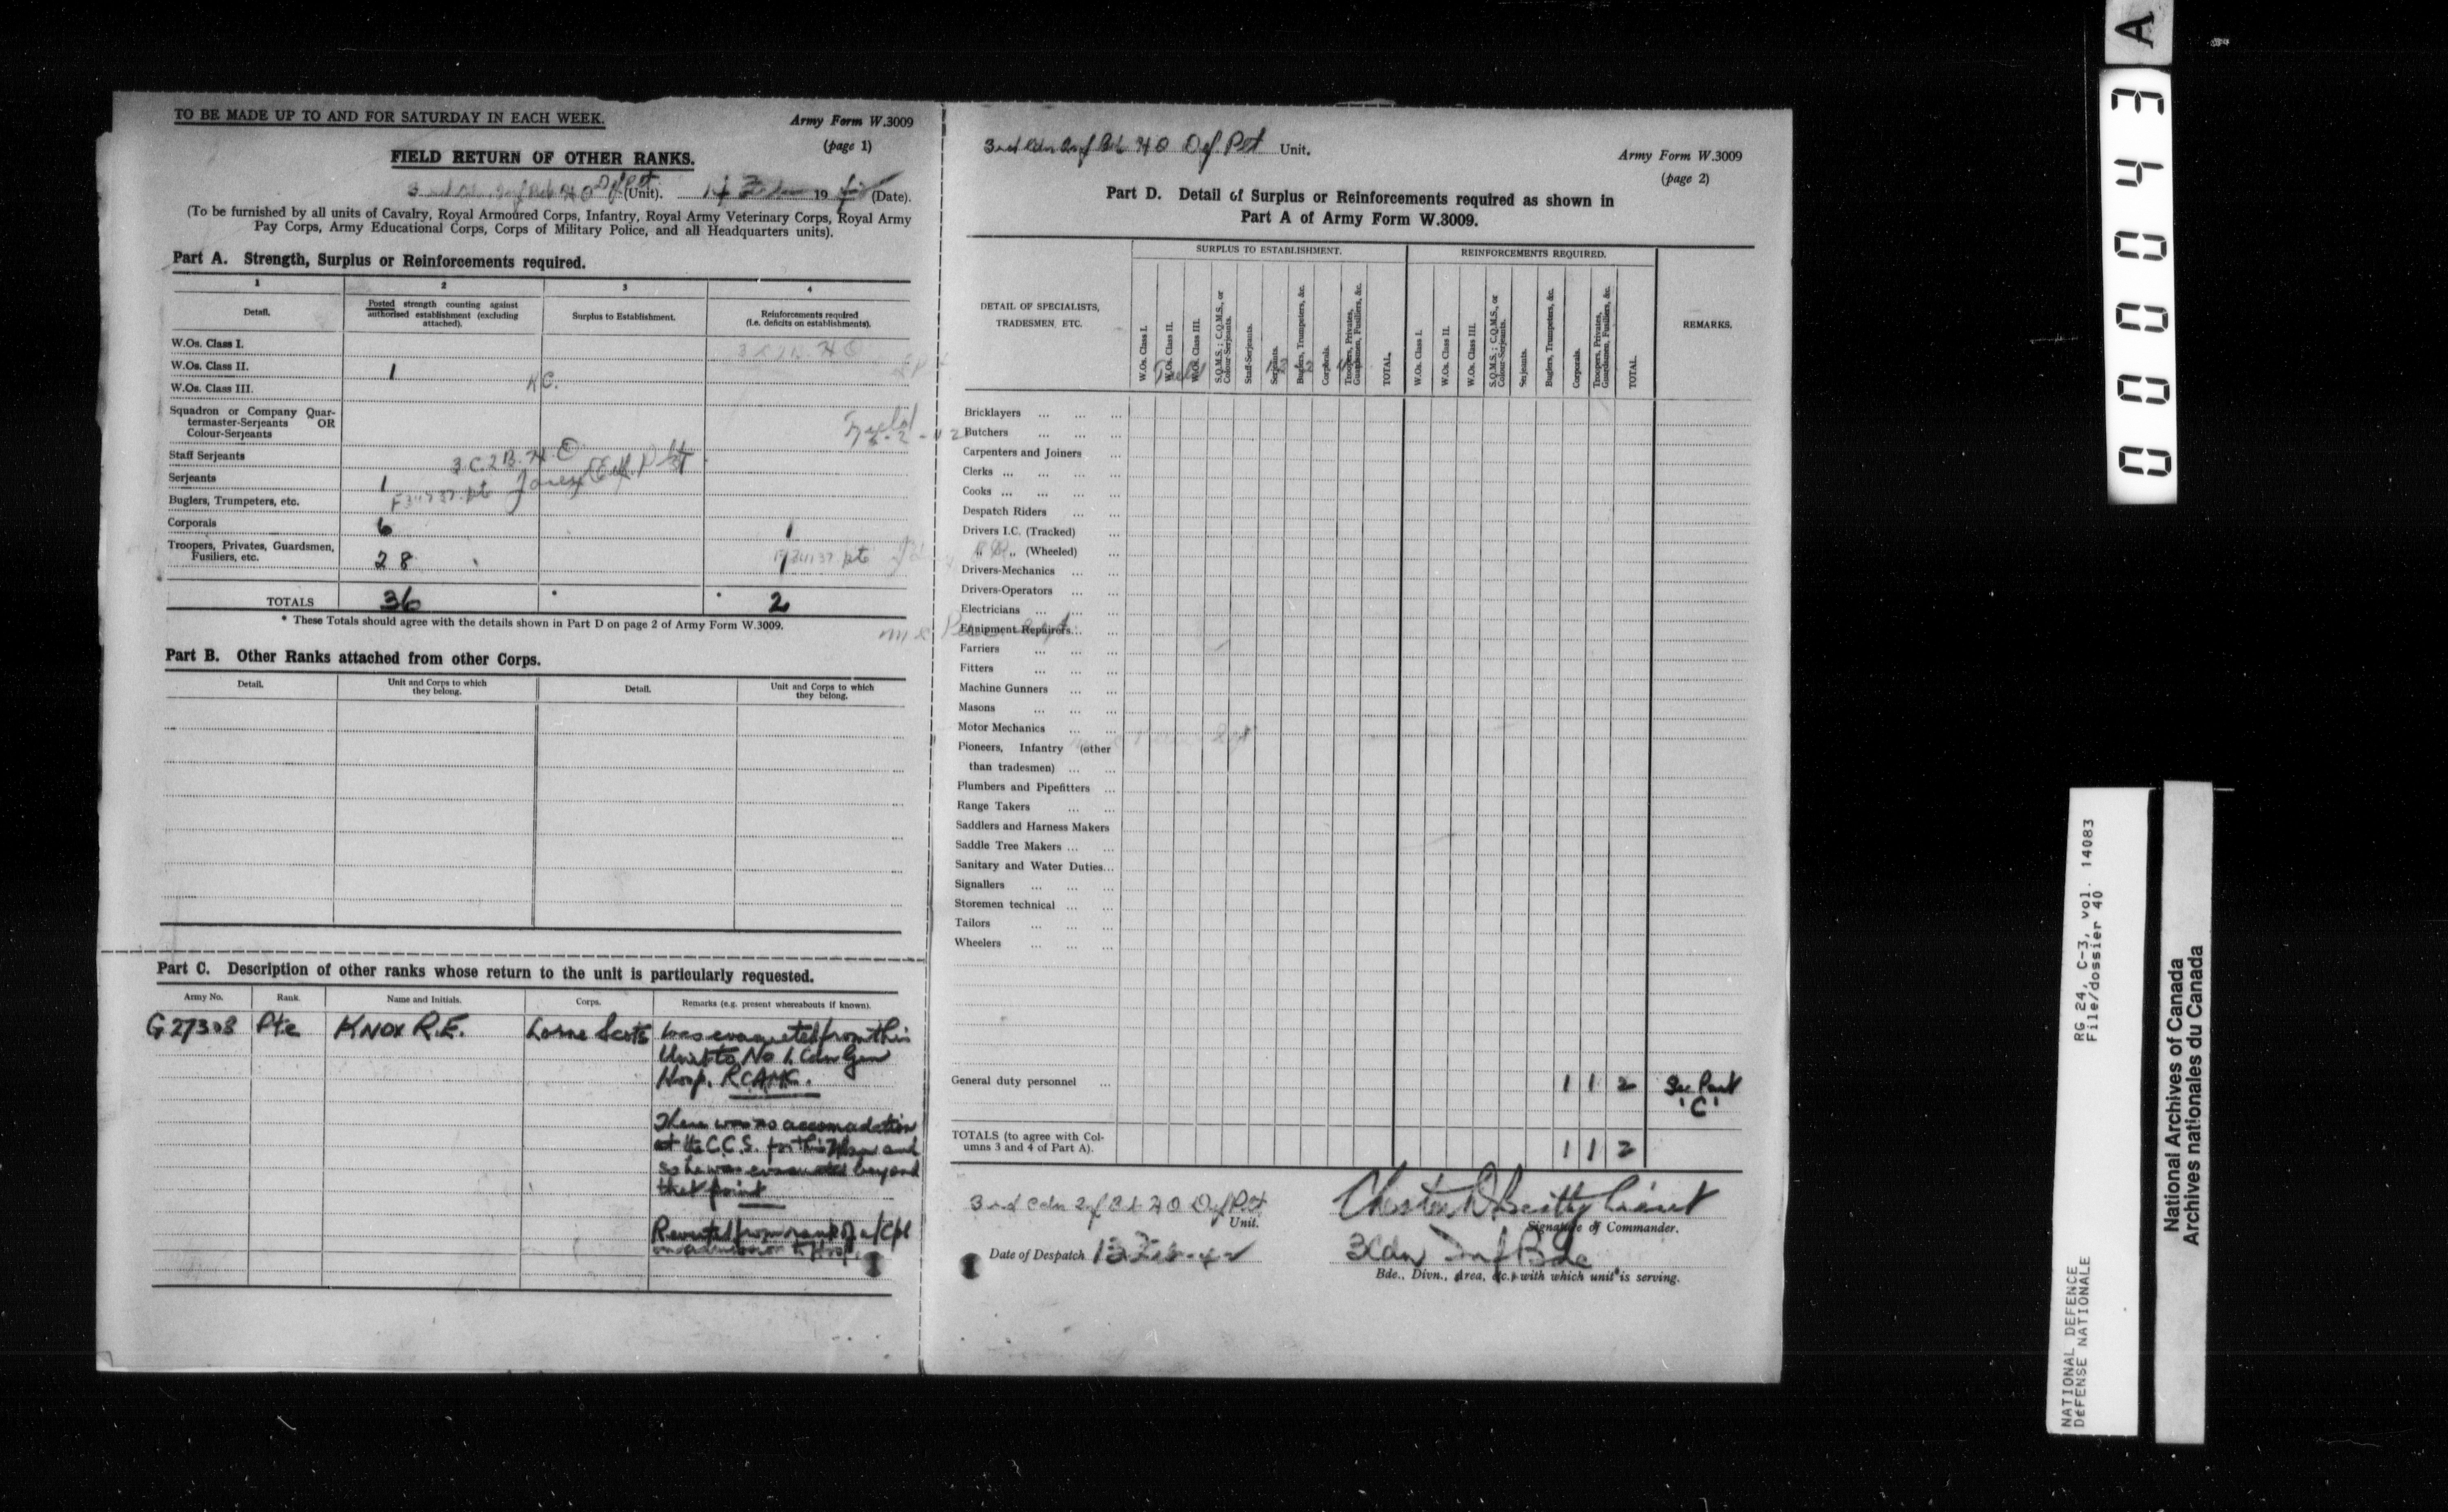 TO BE MADE UP TO AND FOR SATURDAY IN EACH WEEK.
Army Form W.3009
(page 1)
FIELD RETURN OF OTHER RANKS.
(Unit). 19 42 (Date).
(To be furnished by all units of Cavalry, Royal Armoured Corps, Infantry, Royal Army Veterinary Corps, Royal Army
Pay Corps, Army Educational Corps, Corps of Military Police, and all Headquarters units).
Part A. Strength, Surplus or Reinforcements required.
1 2 3 4
Detail.
Posted strength counting against
authorised establishment (excluding
attached).
Surplus to Establishment.
Reinforcements required
(i.e. deficits on establishments).
W.Os. Class I.
W.Os. Class II. 1
W.Os. Class III.
Squadron or Company Quar-
termaster-Serjeants OR
Colour-Serjeants
Staff Serjeants
Serjeants 1
Buglers, Trumpeters, etc.
Corporals 6 1
Troopers, Privates, Guardsmen,
Fusiliers, etc. 28 1
TOTALS 36 * * 2
* These Totals should agree with the details shown in Part D on page 2 of Army Form W.3009.
Part B. Other Ranks attached from other Corps.
Detail.
Unit and Corps to which
they belong.
Detail.
Unit and Corps to which
they belong.
Part C. Description of other ranks whose return to the unit is particularly requested.
Army No. Rank. Name and Initials. Corps. Remarks (e.g. present whereabouts if known).
G 27308 Pte KNOX R.E. Lorne Scots Was evacuated from this
Unit to No 1. Cdn Gen
Hosp. RCAMC.
There was no accomadation
at the C.C.S. for this man and
so he was evacuated beyond
that point
Reverted from rank of a/Cpl
on admission to Hosp.
3rd Cdn Inf Bde HQ Def Plt Unit.
Army Form W.3009
(page 2)
Part D. Detail of Surplus or Reinforcements required as shown in
Part A of Army Form W.3009.
DETAIL OF SPECIALISTS,
TRADESMEN, ETC.
SURPLUS TO ESTABLISHMENT.
W.Os. Class I.
W.Os. Class II.
W.Os. Class III.
S.Q.M.S.; C.Q.M.S., or
Colour-Serjeants.
Staff-Serjeants.
Serjeants.
Buglers, Trumpeters, &c.
Corporals.
Troopers, Privates,
Guardsmen, Fusiliers, &c.
TOTAL.
REINFORCEMENTS REQUIRED.
W.Os. Class I.
W.Os. Class II.
W.Os. Class III.
S.Q.M.S.; C.Q.M.S., or
Colour-Serjeants.
Serjeants.
Buglers, Trumpeters, &c.
Corporals.
Troopers, Privates,
Guardsmen, Fusiliers, &c.
TOTAL.
REMARKS.
Bricklayers ... ... ...
Butchers ... ... ...
Carpenters and Joiners ...
Clerks ... ... ... ...
Cooks ... ... ... ...
Despatch Riders ... ...
Drivers I.C. (Tracked) ...
„ „ (Wheeled) ...
Drivers-Mechanics ... ...
Drivers-Operators ... ...
Electricians ... ... ...
Equipment Repairers... ...
Farriers ... ... ...
Fitters ... ... ...
Machine Gunners ... ...
Masons ... ... ...
Motor Mechanics ... ...
Pioneers, Infantry (other
than tradesmen) ... ...
Plumbers and Pipefitters ...
Range Takers ... ...
Saddlers and Harness Makers
Saddle Tree Makers ... ...
Sanitary and Water Duties...
Signallers ... ... ...
Storemen technical ... ...
Tailors ... ... ...
Wheelers ... ... ...
General duty personnel ... 1 1 2 See Part
'C'
TOTALS (to agree with Col-
umns 3 and 4 of Part A). 1 1 2
3rd Cdn Inf Bde HQ Def Plt
Unit.
Chester Beatty Lieut
Signature of Commander.
Date of Despatch 13 Feb 42
3 Cdn Inf Bde
Bde., Divn., Area, &c., with which unit is serving.
A
000043
RG 24, C-3, vol. 14083
File/dossier 40
NATIONAL DEFENCE
DÉFENSE NATIONALE
National Archives of Canada
Archives nationales du Canada